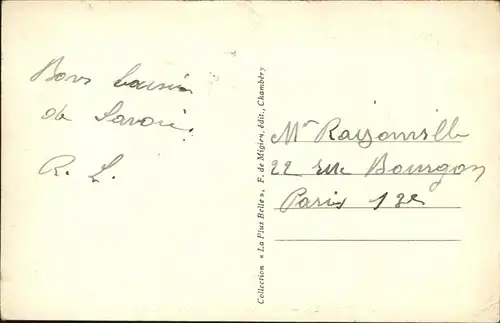 Bons baisers
de Savoie.
R. L.
Collection « La Plus Belle », F. de Migieu, édit., Chambéry
Mr
22 rue Bourgon
Paris 13e